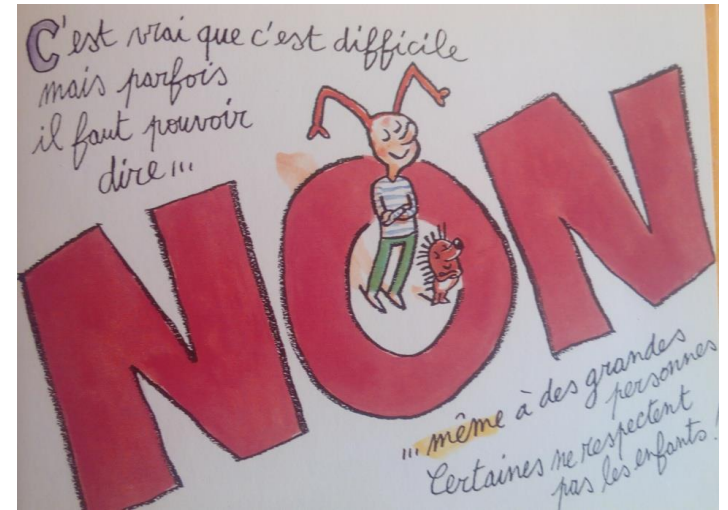 C'est vrai que c'est difficile
mais parfois
il faut pouvoir
dire...
NON
... même à des grandes
personnes
Certaines ne respectent
pas les enfants !